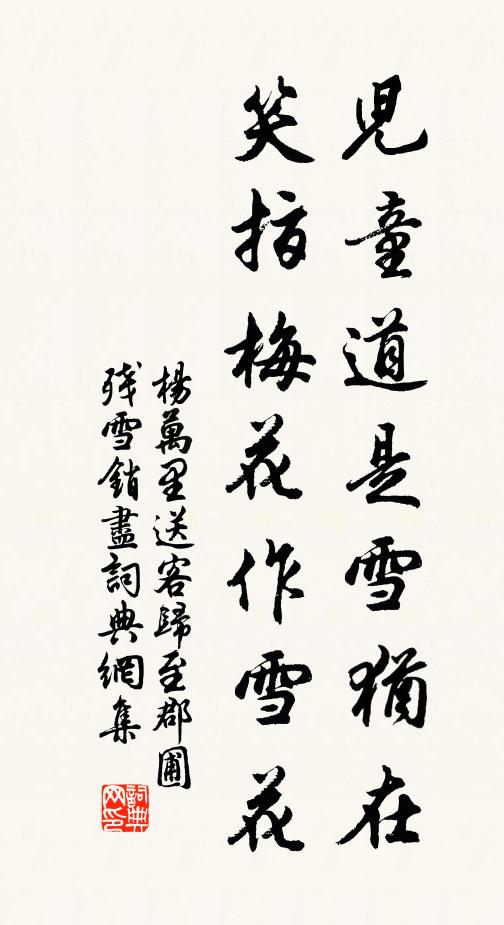 兒童道是雪猶在
笑指梅花作雪花
楊萬里送客歸至郡圃
殘雪銷盡詞典網集
詞典
网印